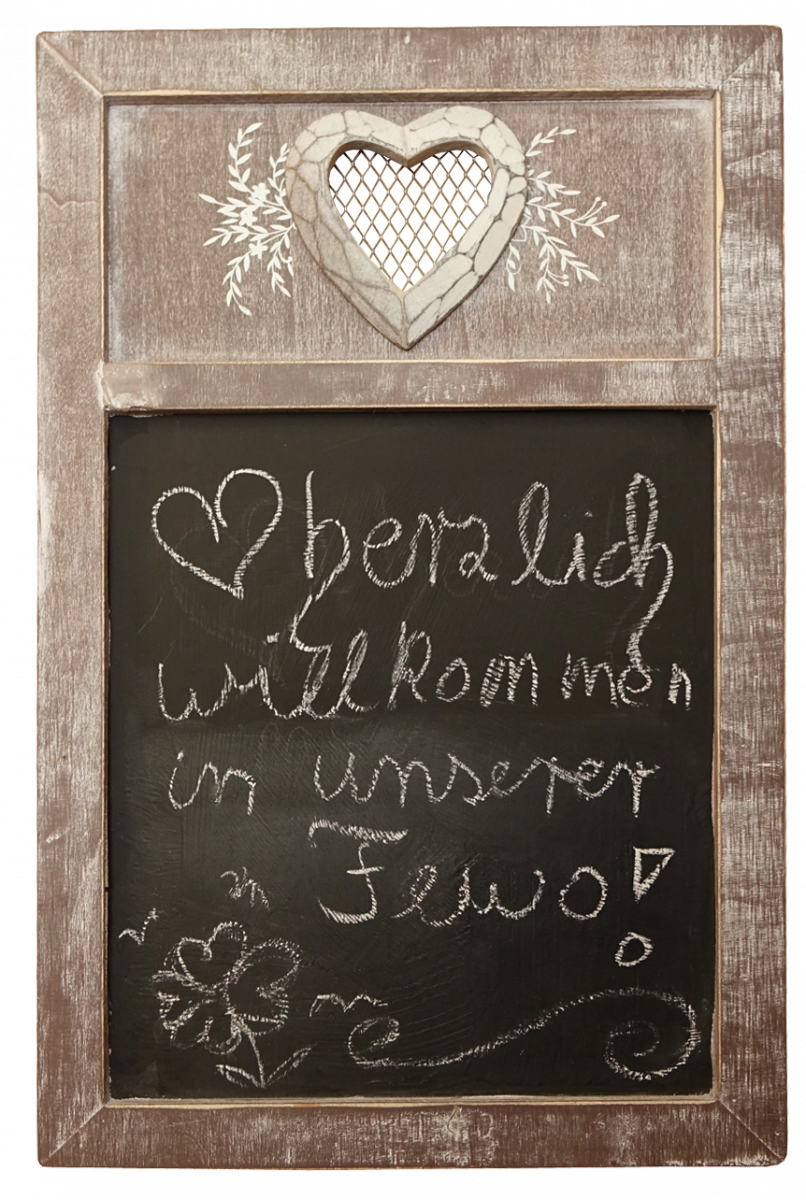 herzlich
willkommen
in unserer
Fewo!